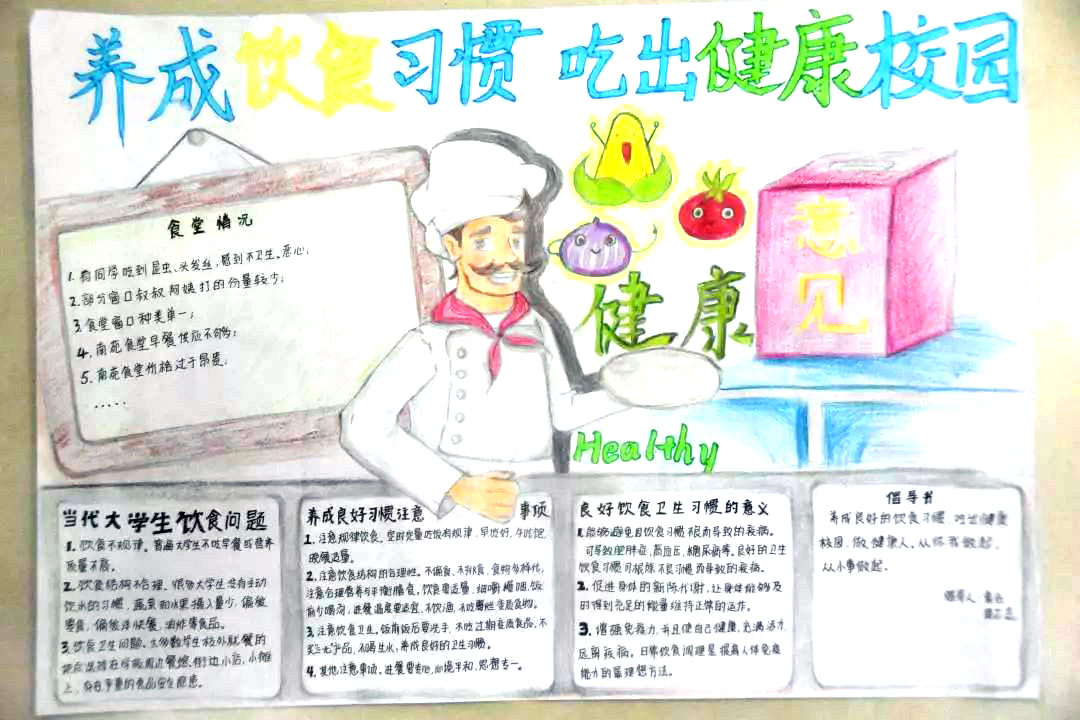 养成饮食习惯 吃出健康校园
食堂情况
1.有同学吃到昆虫、头发丝,感到不卫生、恶心;
2.部分窗口叔叔阿姨打的份量较少;
3.食堂窗口种类单一;
4.南苑食堂早餐供应不够多;
5.南苑食堂价格过于昂贵;
.....
意见
健康
Healthy
当代大学生饮食问题
1.饮食不规律。普遍大学生不吃早餐或营养
质量不高。
2.饮食结构不合理。很多大学生没有主动
饮水的习惯,蔬菜和水果摄入量少,偏爱
零食,偏爱洋快餐、油炸等食品。
3.饮食卫生问题。大多数学生校外就餐的
地点选择在学校周边餐馆、街边小店、小摊
上,存在严重的食品安全隐患。
养成良好习惯注意事项
1.注意规律饮食。定时定量吃饭有规律,早吃好,午吃饱,
晚餐适量。
2.注意饮食结构的合理性。不偏食、不挑食,食物多样化,
注意合理营养与平衡膳食。饮食要适量,细嚼慢咽,饭
前少喝汤,进餐温度要适宜,不饮酒,不吃霉烂变质食物。
3.注意饮食卫生。饭前饭后要洗手,不吃过期变质食品,不
买三无产品,不喝生水,养成良好的卫生习惯。
4.其他注意事项。进餐要专心,心境平和,思想专一。
良好饮食卫生习惯的意义
1.能够避免因饮食习惯不良而导致的疾病。
可导致肥胖症、高血压、糖尿病等。良好的卫生
饮食习惯可根除不良习惯而导致的疾病。
2.促进身体的新陈代谢,让身体能够及
时得到充足的能量维持正常的运作。
3.增强免疫力,并且使自己健康,充满活力,
远离疾病。日常饮食调理是提高人体免疫
能力的最理想方法。
倡导书
养成良好的饮食习惯,吃出健康
校园,做健康人,从你我做起,
从小事做起。
倡导人: